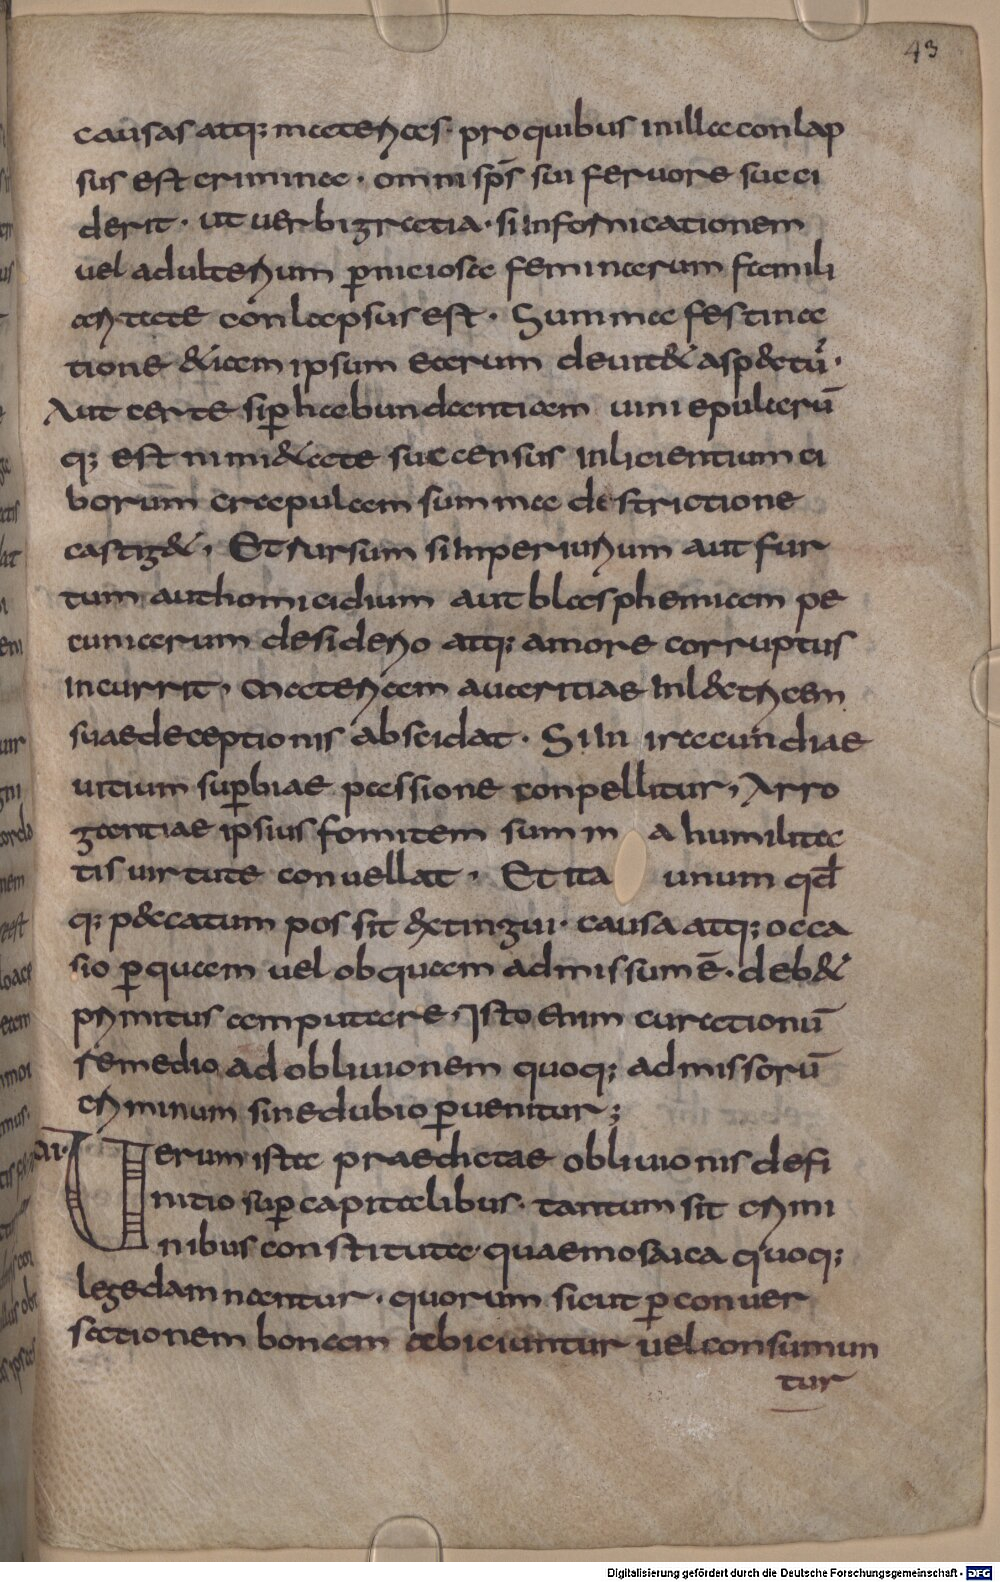 43
causas atq; materias · pro quibus in illa conlap
sus est crimina · omni sp̄s sui feruore succi
derit · ut uerbi gratia · si in fornicationem
uel adulterium p̱niciosa feminarum famili
aritate conlapsus est · Summa festina
tione etiam ipsum earum deuitet aspectū ·
Aut certe sip̱ habundantiam uini epularū
q; est nimietate succensus inlicientum ci
borum crapulam summa destrictione
castiget · Et rursum si in periurium aut fur
tum aut homicidium aut blasphemiam pe
cuniarum desiderio atq; amore corruptus
incurrit · materiam auaritiae inlectricem
suae deceptionis abscidat · Si in iracundiae
uitium sup̱biae passione conpellitur, Arro
gantiae ipsius fomitem summa humilita
tis uirtute conuellat · Et ita unum qd̄
q; peccatum possit extingui · causa atq; occa
sio p̱ quam uel ob quam admissum ē · debet
primitus amputare, Isto enim curationū
remedio ad obliuionem quoq; admissorū
criminum sine dubio p̱uenitur ;
XI · Uerum ista praedictae obliuionis defi
nitio sup̱ capitalibus · tantum sit crimi
nibus constituta · quae mosaica quoq;
lege damnantur · quorum sicut p̱ conuer
sationem bonam abiciuntur uel consumun
tur
Digitalisierung gefördert durch die Deutsche Forschungsgemeinschaft - DFG